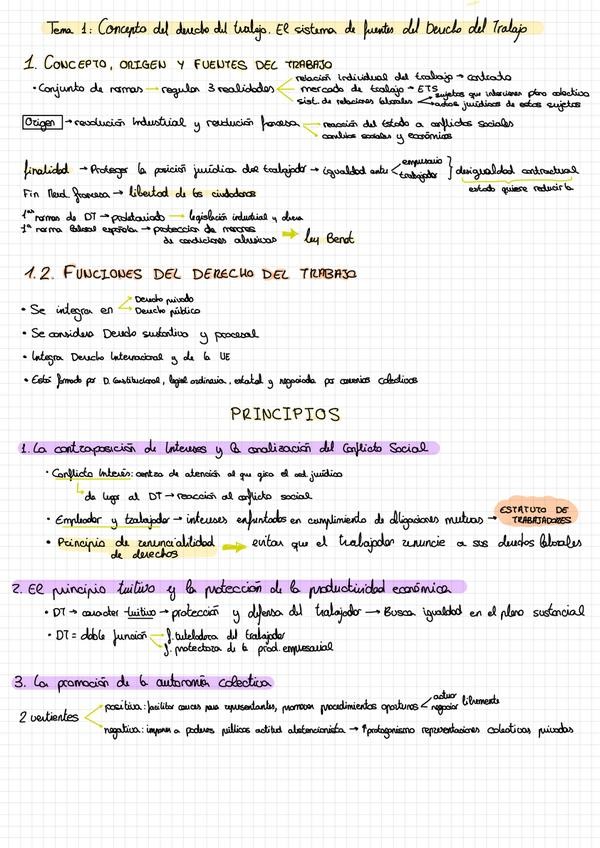 Tema 1: Concepto del derecho del trabajo. El sistema de fuentes del Derecho del Trabajo
1. CONCEPTO, ORIGEN Y FUENTES DEL TRABAJO
relación individual del trabajo → contrato
• Conjunto de normas → regulan 3 realidades mercado de trabajo → ETS
sist. de relaciones laborales sujetos que intervienen plano colectivo
actos jurídicos de estos sujetos
Origen → revolución Industrial y revolución francesa reacción del Estado a conflictos sociales
cambios sociales y económicos
finalidad → Proteger la posición jurídica del trabajador → igualdad entre empresario trabajador } desigualdad contractual
estado quiere reducirla
Fin Revol. francesa → libertad de los ciudadanos
1ªs normas de DT → proletariado → legislación industrial y obrera
1ª norma laboral española → protección de menores
de condiciones abusivas → Ley Benot
1.2. FUNCIONES DEL DERECHO DEL TRABAJO
• Se integra en Derecho privado
Derecho público
• Se considera Derecho sustantivo y procesal
• Integra Derecho Internacional y de la UE
• Está formado por D. Constitucional, legisl. ordinaria, estatal y negociada por convenios colectivos
PRINCIPIOS
1. La contraposición de Intereses y la canalización del Conflicto Social
• Conflicto Interés: centro de atención al que gira el ord. jurídico
da lugar al DT → reacción al conflicto social
• Empleador y trabajador → intereses enfrentados en cumplimiento de obligaciones mutuas → ESTATUTO DE TRABAJADORES
• Principio de irrenunciabilidad de derechos → evitar que el trabajador renuncie a sus derechos laborales
2. El principio tuitivo y la protección de la productividad económica
• DT → caracter tuitivo → protección y defensa del trabajador → Busca igualdad en el plano sustancial
• DT = doble función f. tuteladora del trabajador
f. protectora de la prod. empresarial
3. La promoción de la autonomía colectiva
2 vertientes positiva: facilitar cauces para representantes, promover procedimientos oportunos actuar negociar libremente
negativa: imponer a poderes públicos actitud abstencionista → ↑protagonismo representaciones colectivas privadas